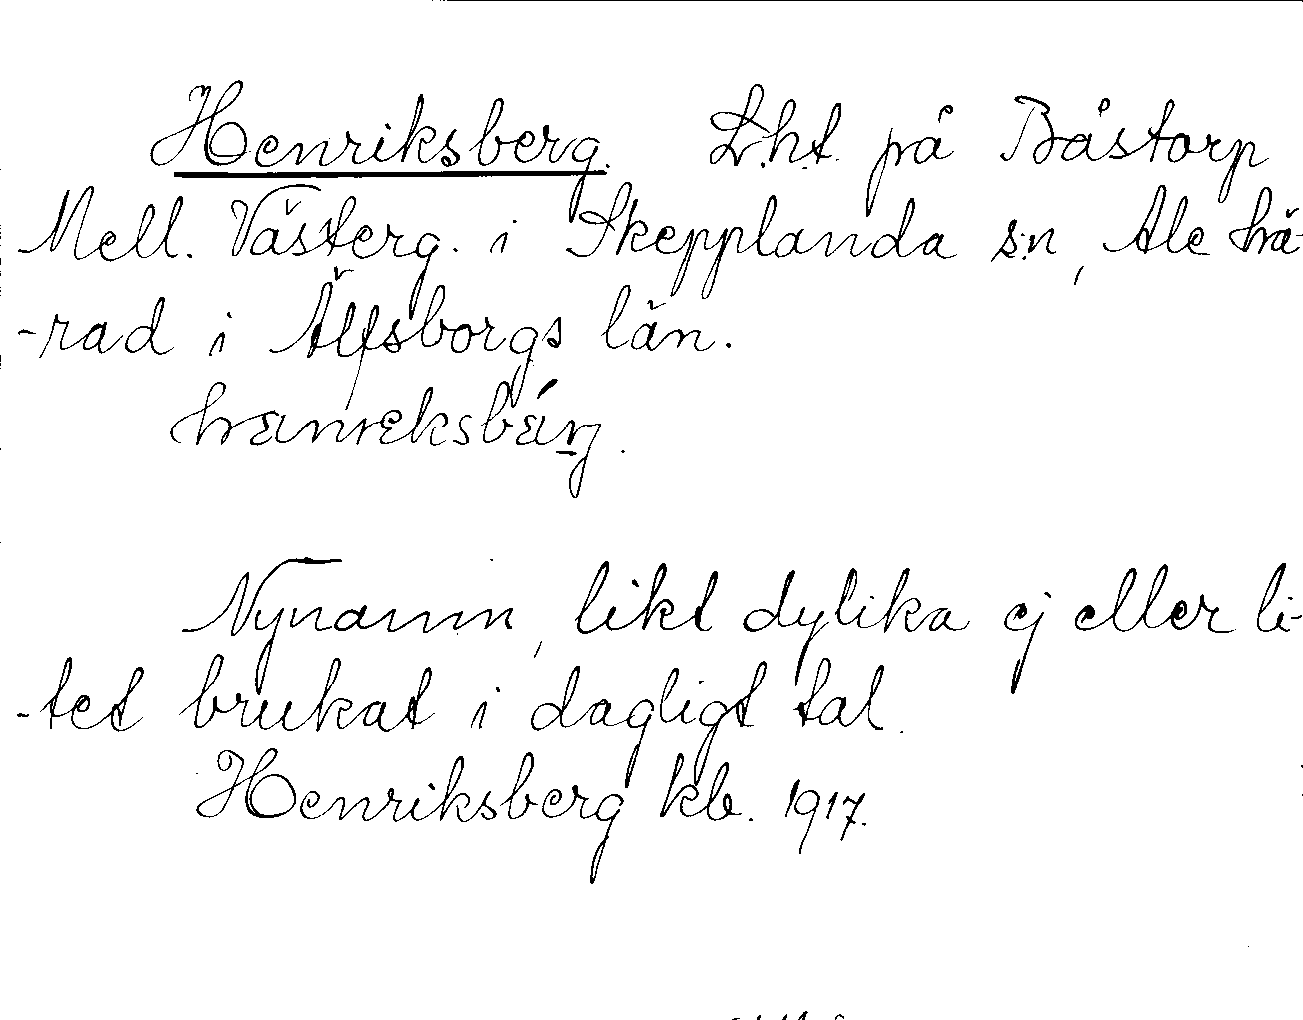 Henriksberg. L.ht. på Båstorp
Mell. Västerg. i Skepplanda s:n, Ale hä-
-rad i Älfsborgs län.
hænreksbǽrj.
Nynamn, likt dylika ej eller li-
-tet brukat i dagligt tal.
Henriksberg kb. 1917.